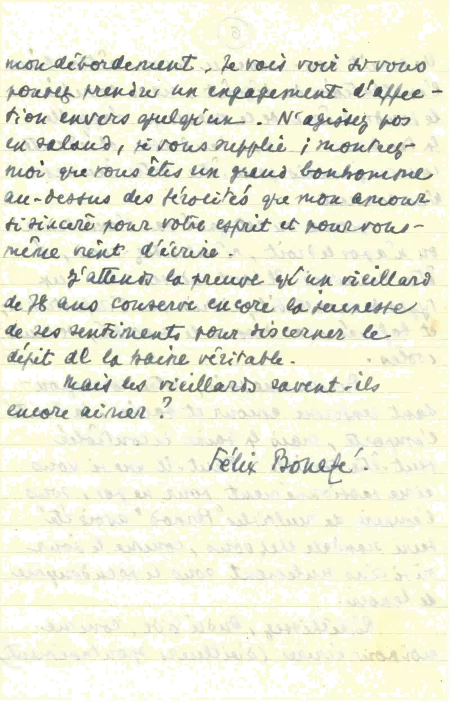 mon débordement. Je vais voir si vous
pouvez prendre un engagement d'affec-
tion envers quelqu'un. N'agissez pas
en salaud, je vous supplie ; montrez-
moi que vous êtes un grand bonhomme
au-dessus des férocités que mon amour
si sincère pour votre esprit et pour vous-
même vient d'écrire.
J'attends la preuve qu'un vieillard
de 78 ans conserve encore la jeunesse
de ses sentiments pour discerner le
dépit de la haine véritable.
Mais les vieillards savent-ils
encore aimer ?
Félix Bonafé